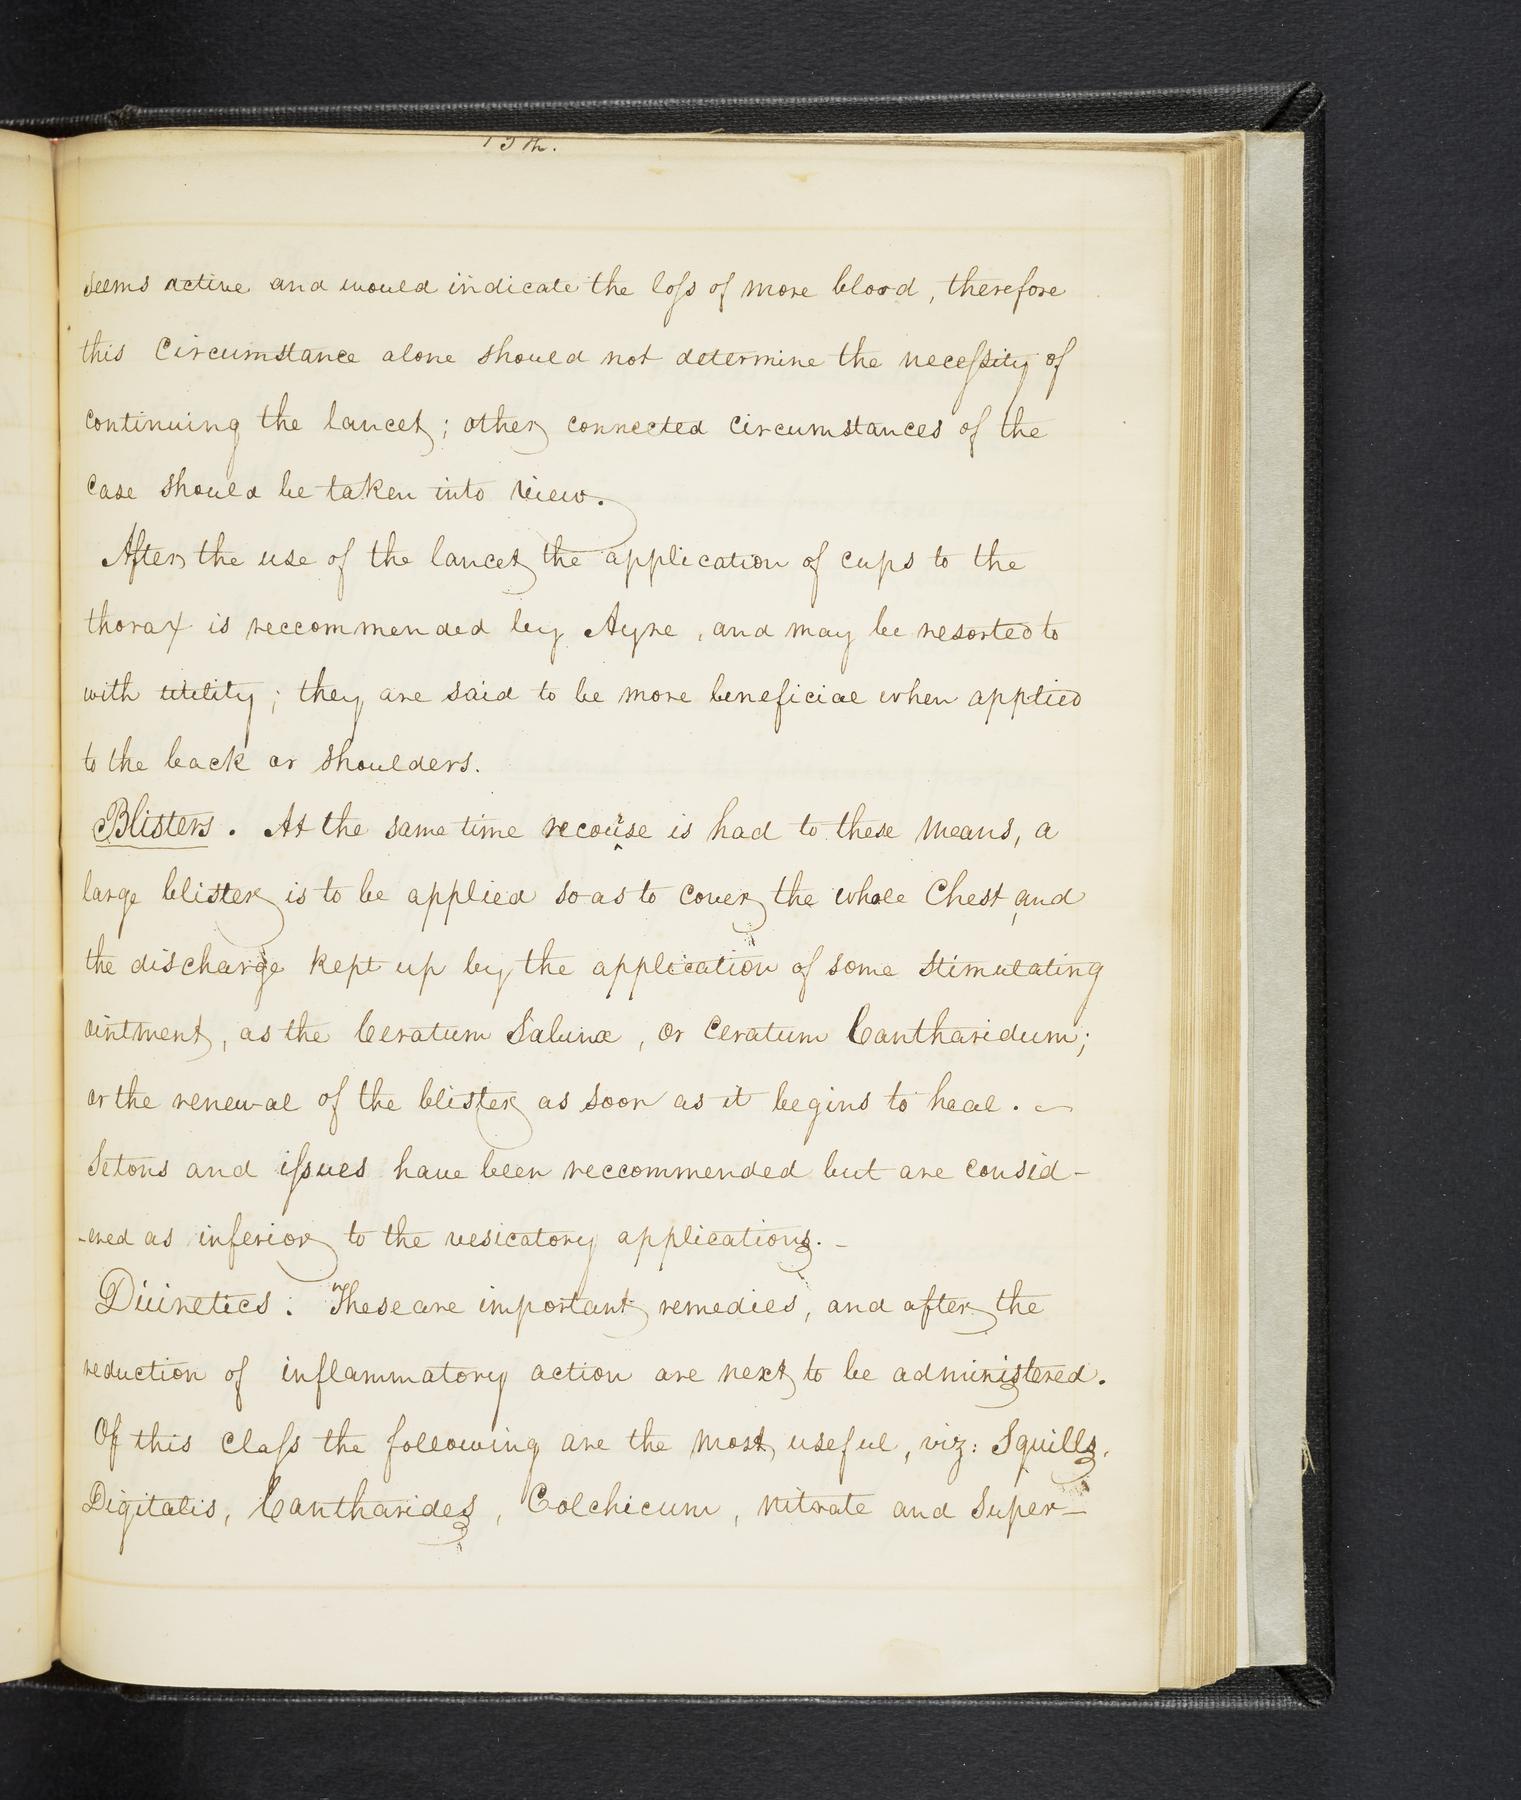 13th.
seems active and would indicate the loſs of more blood, therefore
this Circumstance alone should not determine the neceſsity of
continuing the lancet; other connected circumstances of the
case should be taken into view.
After the use of the lancet the application of cups to the
thorax is reccommended by Ayre, and may be resorted to
with utility; they are said to be more beneficial when applied
to the back or shoulders.
Blisters. At the same time recourse is had to these means, a
large blister is to be applied so as to cover the whole Chest, and
the discharge kept up by the application of some stimulating
ointment, as the Ceratum Sabinæ, or Ceratum Cantharidum;
or the renewal of the blister as soon as it begins to heal. -
Setons and iſsues have been reccommended but are consid-
-ered as inferior to the vesicatory applications. -
Diuretics. These are important remedies, and after the
reduction of inflammatory action are next to be administered.
Of this Claſs the following are the most useful, viz: Squills,
Digitalis, Cantharides, Colchicum, nitrate and Super-